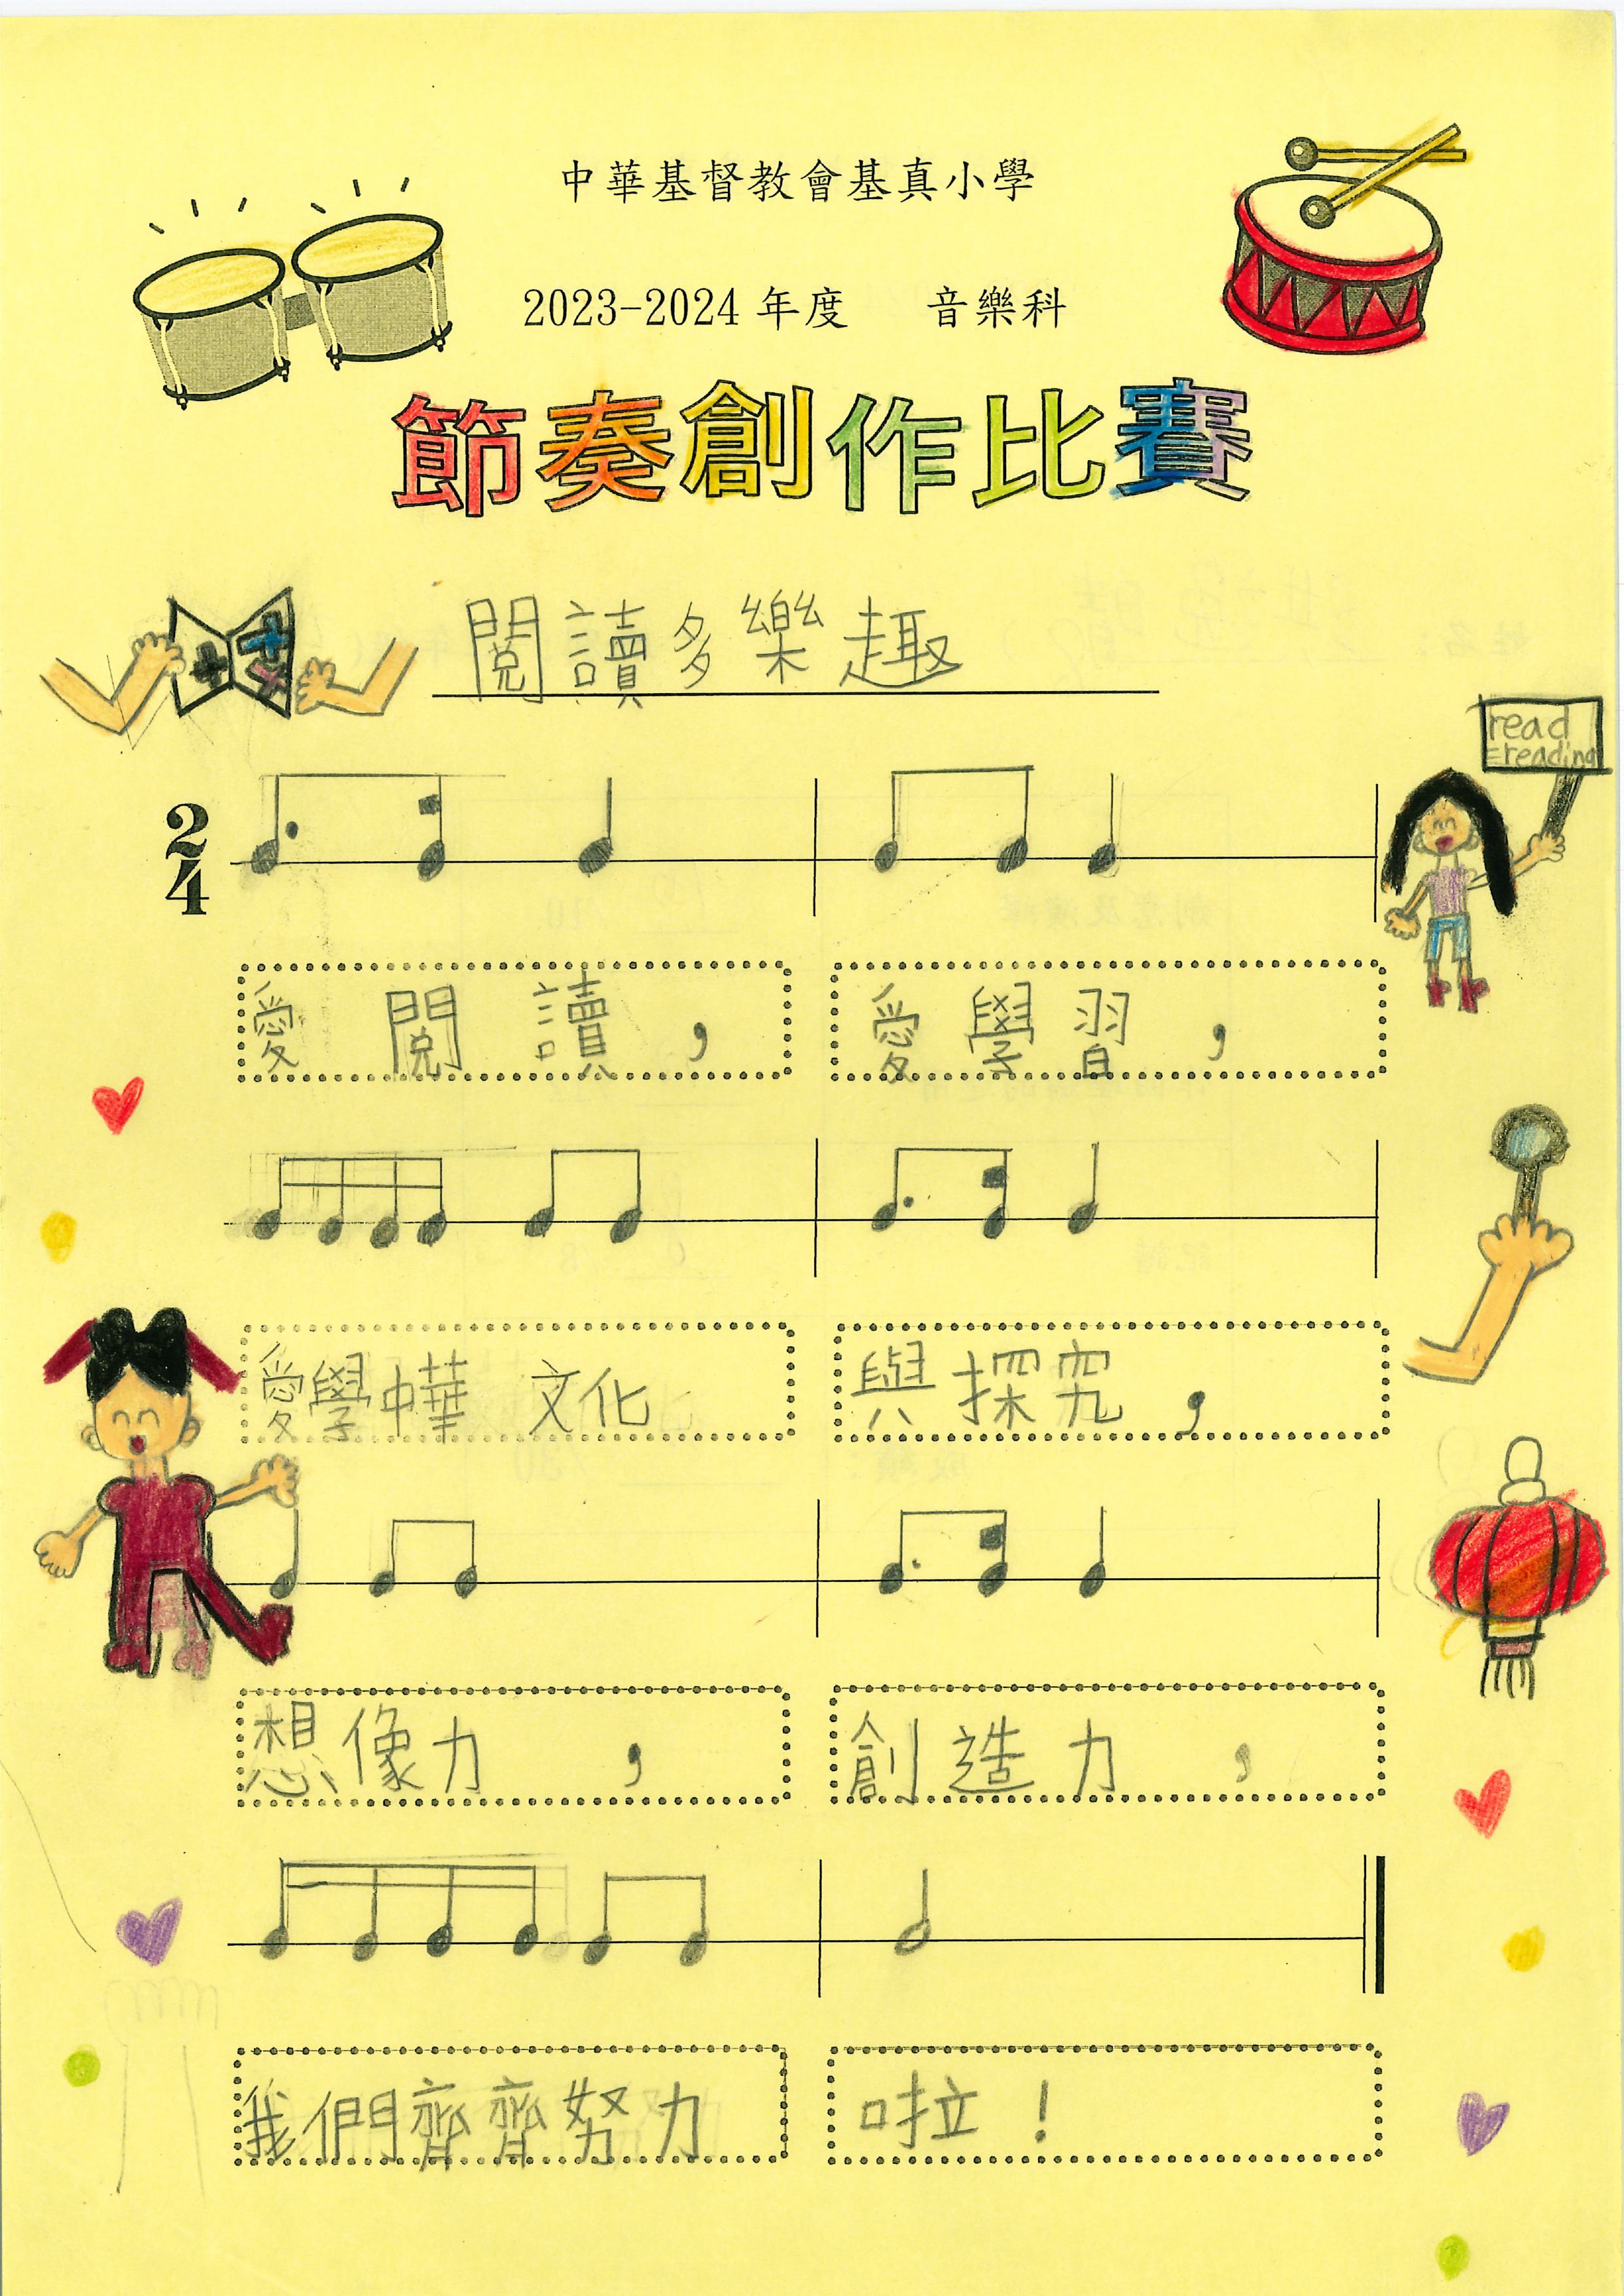 中華基督教會基真小學
2023-2024 年度 音樂科
節奏創作比賽
閱讀多樂趣
read
=reading
2
4
愛 閱 讀 , 愛 學 習 ,
愛學中華 文化 與探究,
想像力 , 創造力 ,
我們齊齊努力 啦!